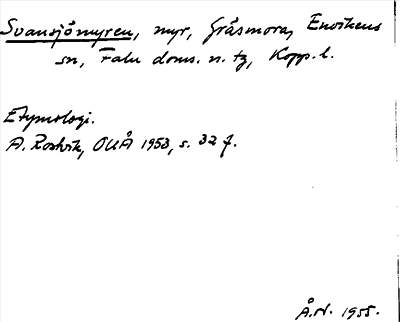 Svansjömyren, myr, Gräsmora, Envikens
sn, Falu doms. n. tg, Kopp. l.
Etymologi.
A. Rostvik, OUÅ 1953, s. 32 f.
Å.N. 1955.